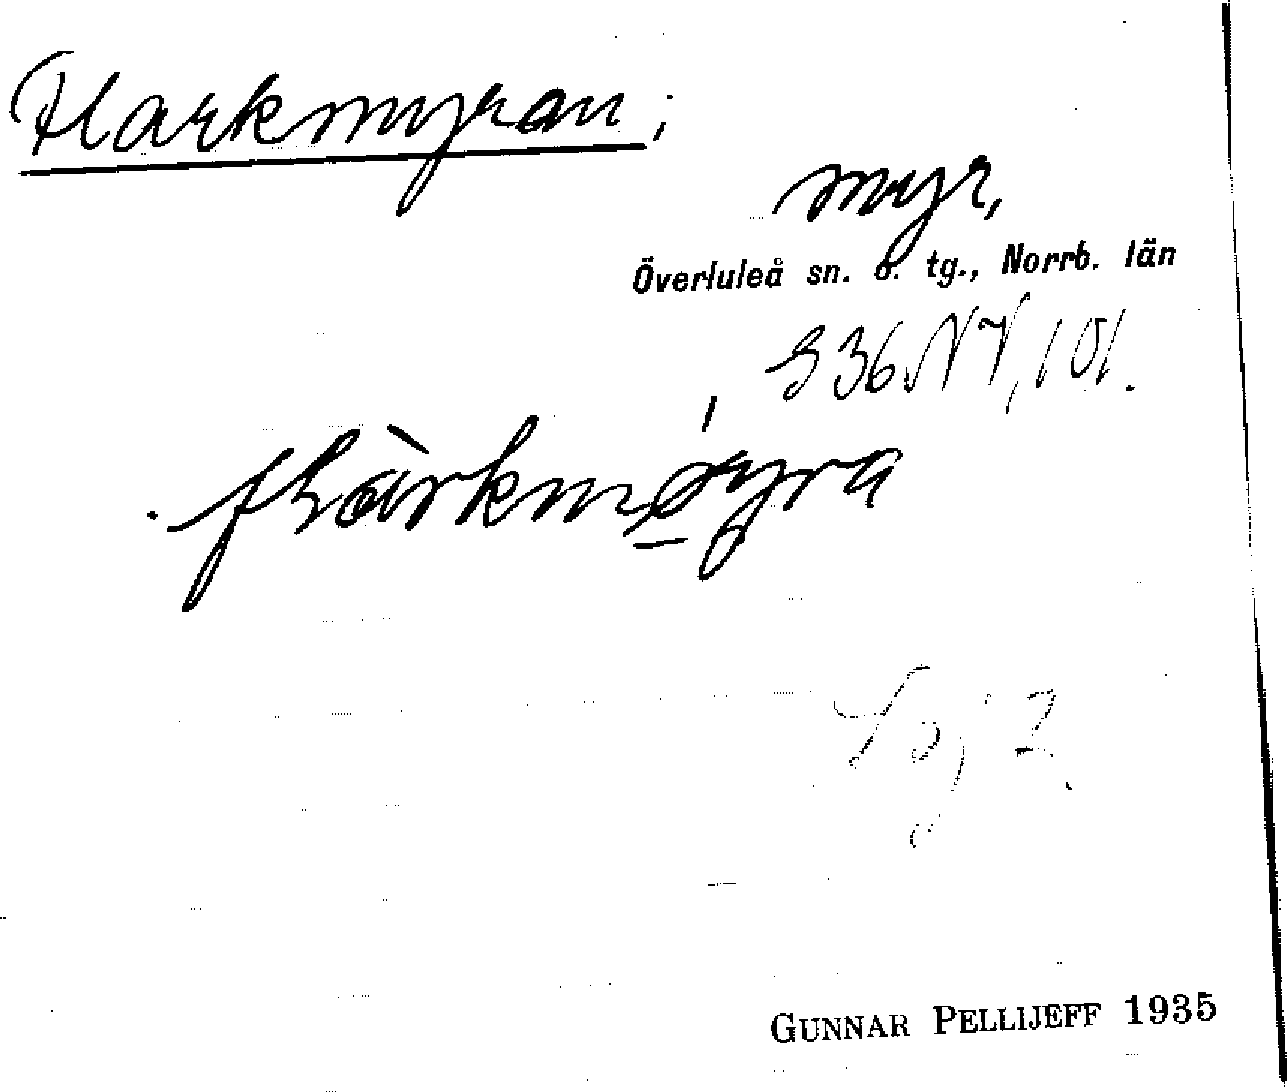 Flarkmyran;
myr,
Överluleå sn. o. tg., Norrb. län
S36NV, 101.
flàrkmøyra
GUNNAR PELLIJEFF 1935